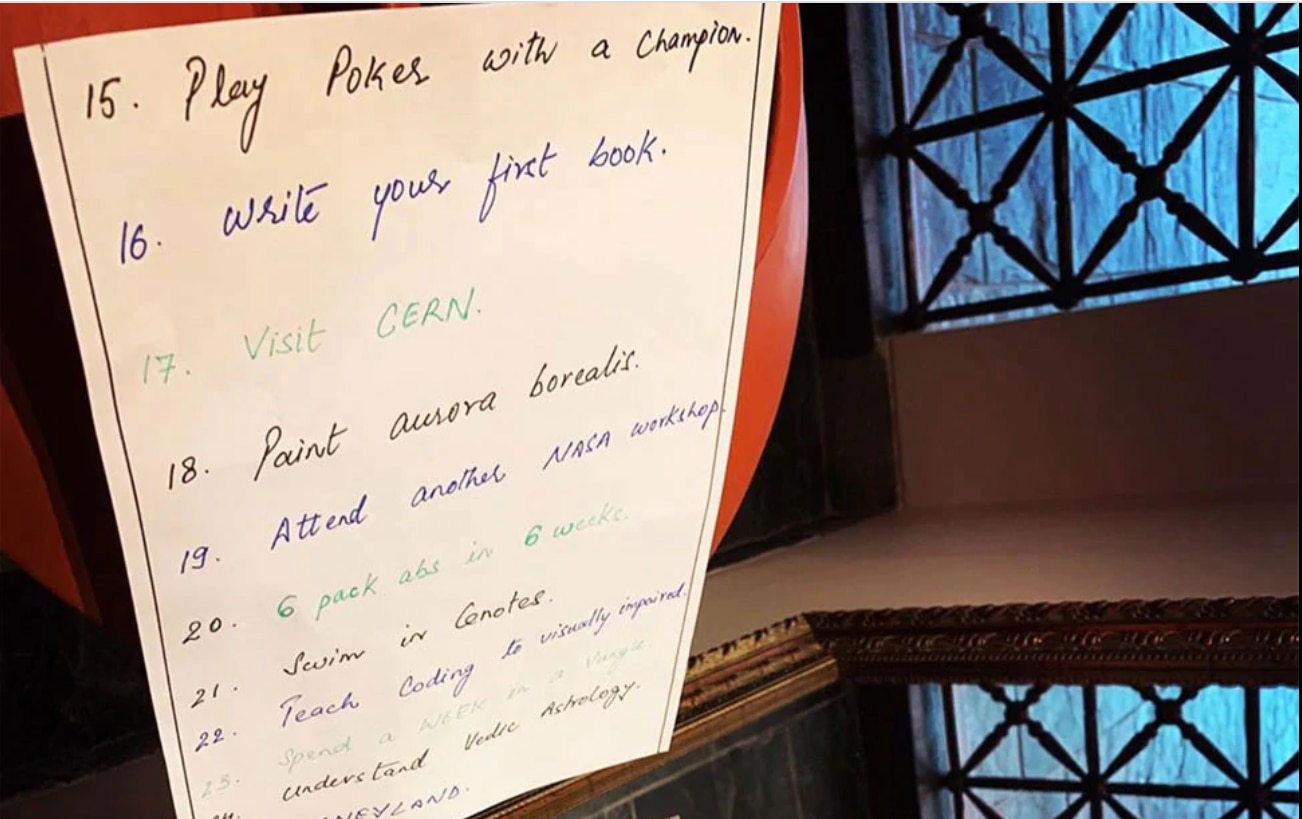 15. Play Poker with a Champion.
16. Write your first book.
17. Visit CERN.
18. Paint aurora borealis.
19. Attend another NASA workshop.
20. 6 pack abs in 6 weeks.
21. Swim in Cenotes.
22. Teach Coding to visually impaired.
23. Spend a WEEK in a
understand Vedic Astrology.